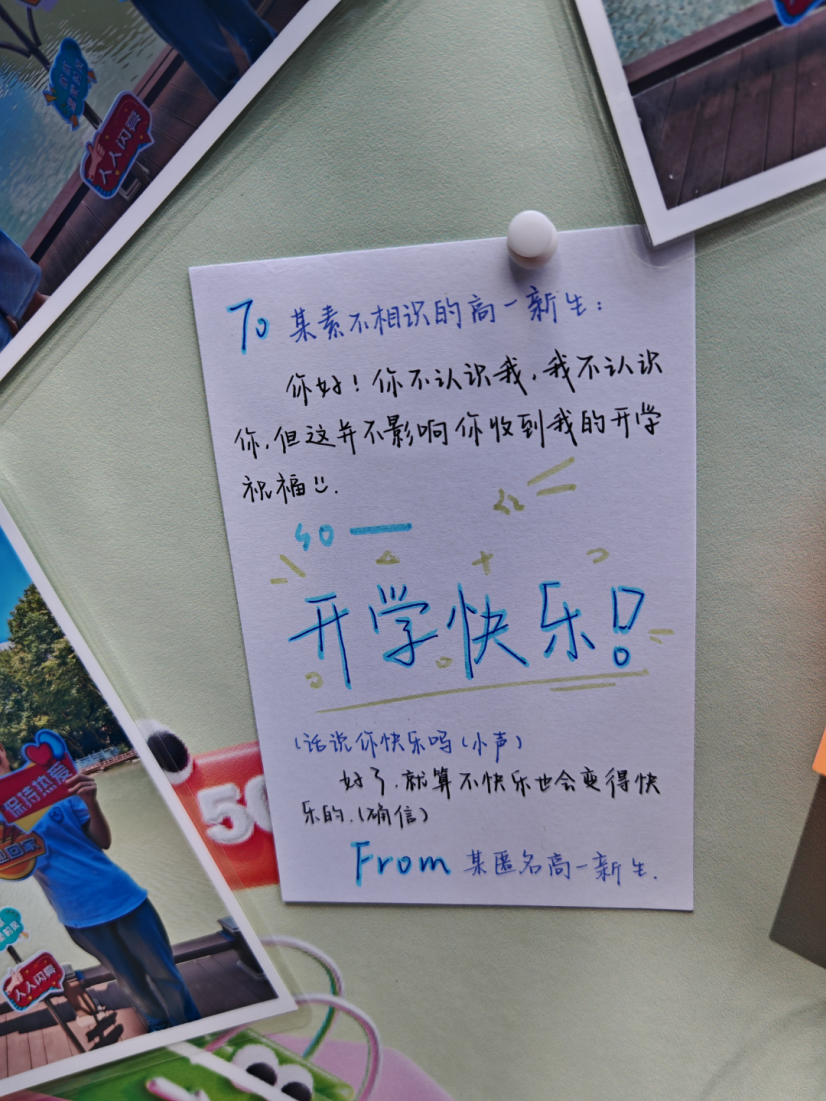 人人闪亮
To 某素不相识的高一新生：
你好！你不认识我，我不认识
你，但这并不影响你收到我的开学
祝福
so —
开学快乐！
（话说你快乐吗（小声）
好了，就算不快乐也会变得快
乐的.（确信）
From 某匿名高一新生.
保持热爱
50
人人闪亮